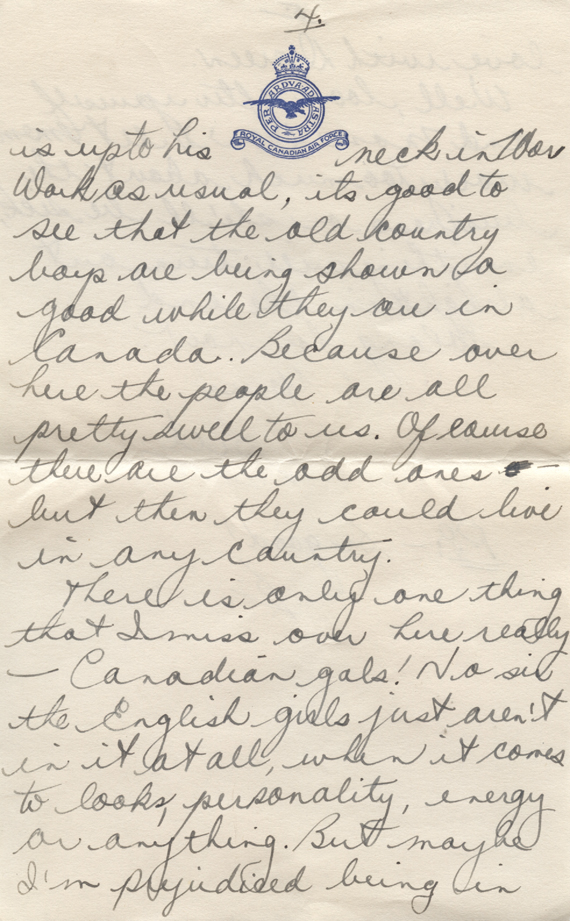 4.
PER ARDVA AD ASTRA
ROYAL CANADIAN AIR FORCE
is up to his neck in War
Work as usual, its good to
see that the old country
boys are being shown a
good while they are in
Canada. Because over
here the people are all
pretty swell to us. Of course
there are the odd ones –
but then they could live
in any country.
There is only one thing
that I miss over here really
— Canadian gals! No sir
the English girls just aren't
in it at all, when it comes
to looks, personality, energy
or anything. But maybe
I'm prejudiced being in